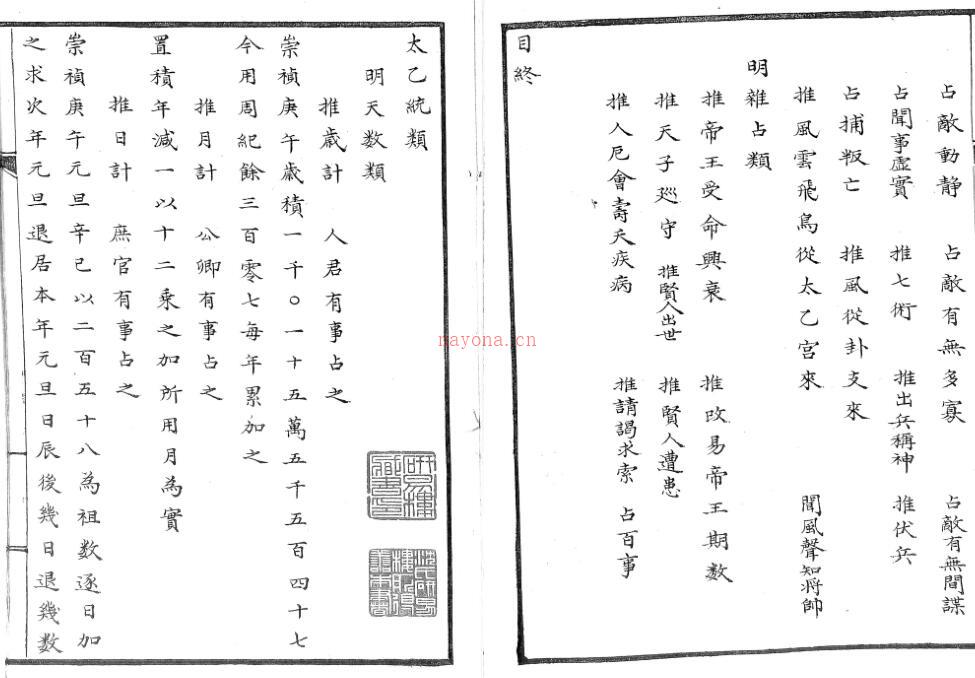 占敵動静　占敵有無多寡　占敵有無間諜
占聞事虛實　推七術　推出兵稱神　推伏兵
占捕叛亡　推風從卦支來
推風雲飛鳥從太乙宮來　聞風聲知將帥
明雜占類
推帝王受命興衰　推改易帝王期数
推天子廵守　推賢人出世　推賢人遭患
推人厄會壽夭疾病　推請謁求索　占百事
目終
太乙統類
明天数類
推歲計　人君有事占之
崇禎庚午歲積一千〇一十五萬五千五百四十七
今用周紀餘三百零七每年累加之
推月計　公卿有事占之
置積年減一以十二乘之加所用月為實
推日計　庶官有事占之
崇禎庚午元旦辛巳以二百五十八為祖数逐日加
之求次年元旦退居本年元旦日辰後幾日退幾数
nayona.cn